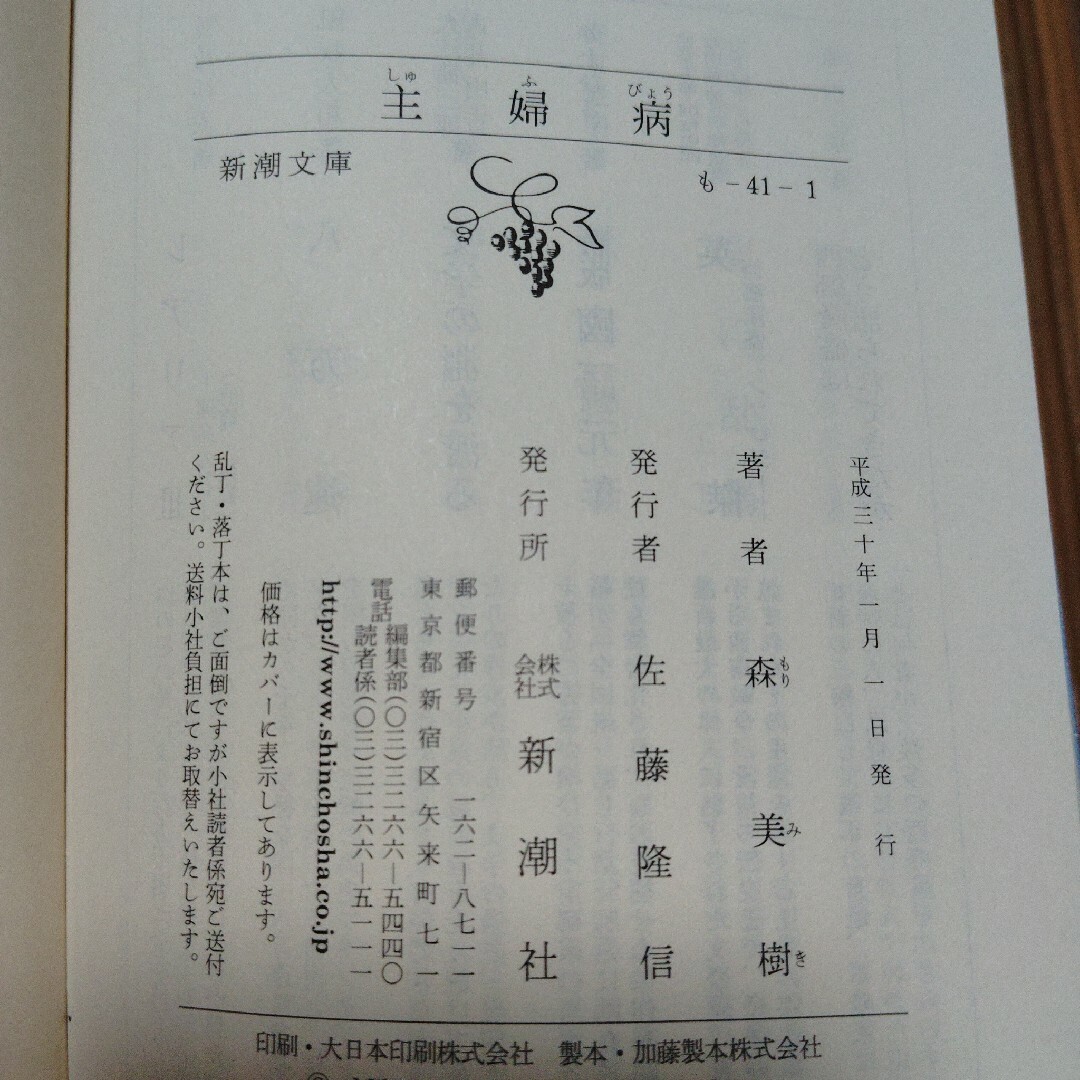 主婦病
しゅ ふ びょう
新潮文庫
も-41-1
平成三十年一月一日発行
著者 森美樹
もり み き
発行者 佐藤隆信
発行所 株式会社 新潮社
郵便番号 一六二―八七一一
東京都新宿区矢来町七一
電話 編集部(〇三)三二六六―五四四〇
読者係(〇三)三二六六―五一一一
http://www.shinchosha.co.jp
価格はカバーに表示してあります。
乱丁・落丁本は、ご面倒ですが小社読者係宛ご送付
ください。送料小社負担にてお取替えいたします。
印刷・大日本印刷株式会社 製本・加藤製本株式会社